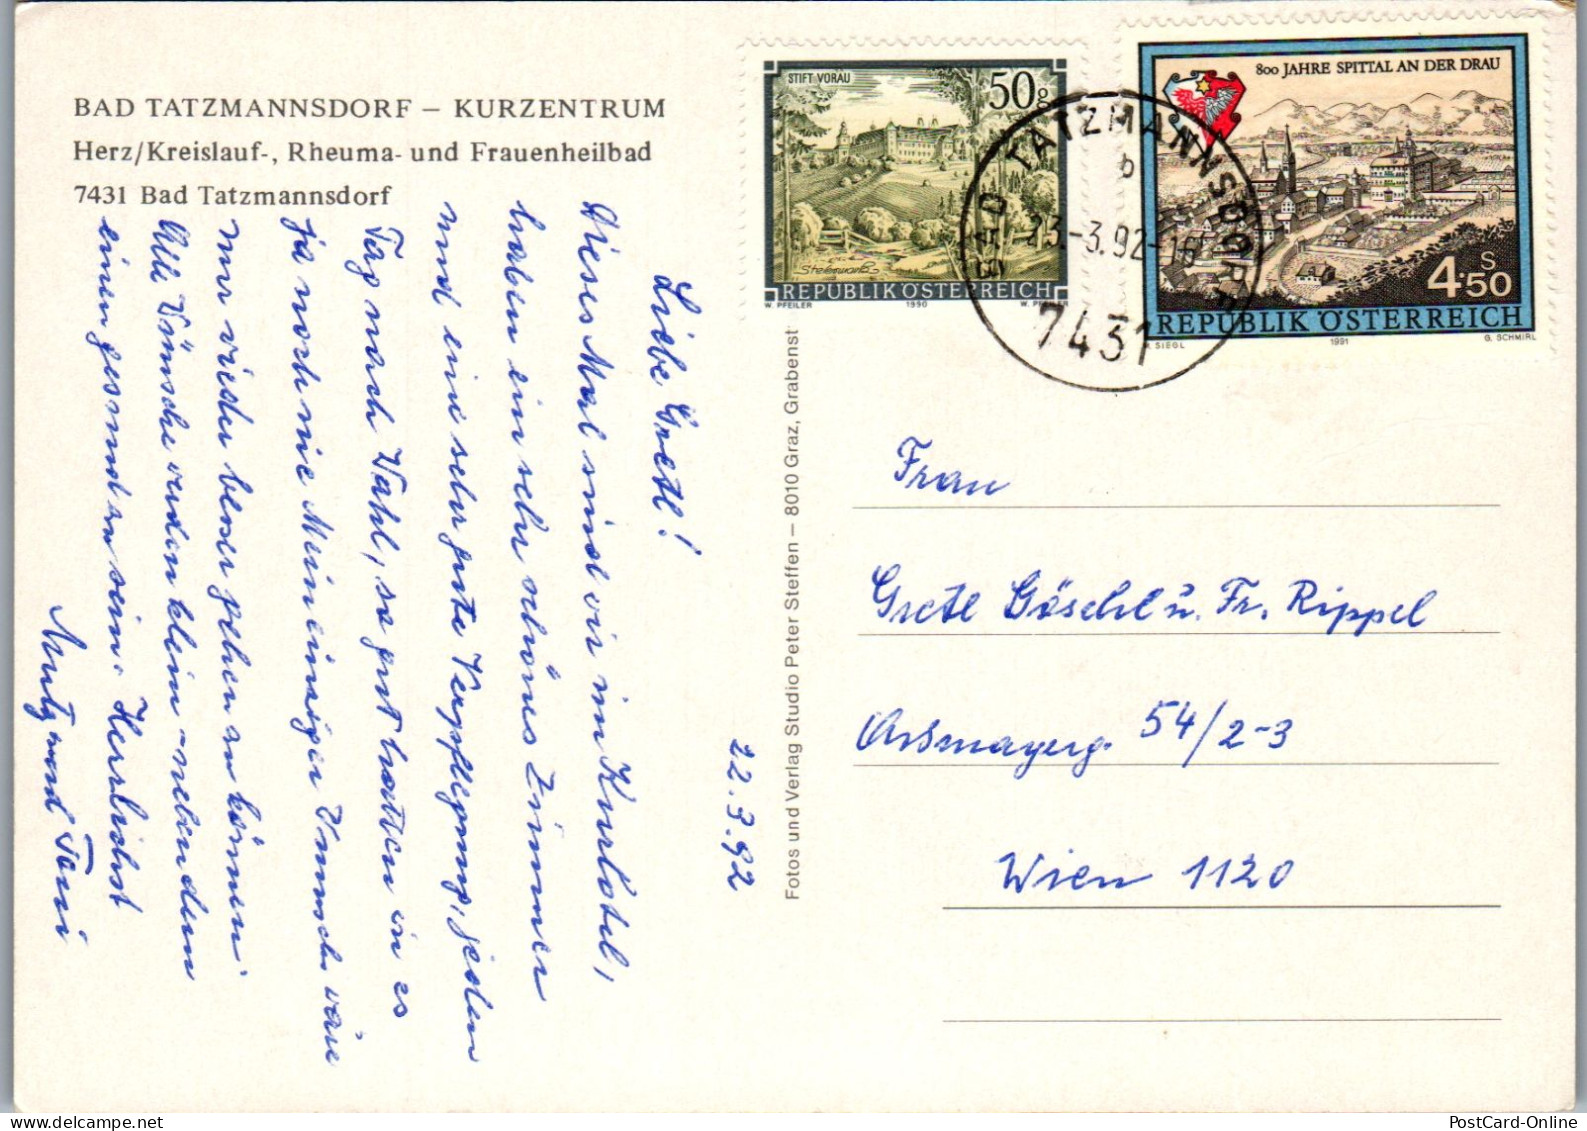 BAD TATZMANNSDORF – KURZENTRUM
Herz/Kreislauf-, Rheuma- und Frauenheilbad
7431 Bad Tatzmannsdorf
22.3.92
Liebe Gretl!
Dieses Mal sind wir im Kurhotel,
haben ein sehr schönes Zimmer
und eine sehr gute Verpflegung, jeden
Tag nach Wahl, so gut hatten wir es
ja noch nie. Mein einziger Wunsch wäre
nur wieder besser gehen zu können.
Alle Wünsche werden klein – neben dem
einen gesund zu sein. Herzlichst
und Toni
Fotos und Verlag Studio Peter Steffen – 8010 Graz, Grabenst
STIFT VORAU
50g
Steiermark
REPUBLIK ÖSTERREICH
W. PFEILER 1990 W. PFEILER
800 JAHRE SPITTAL AN DER DRAU
S
4.50
REPUBLIK ÖSTERREICH
SIEGL 1991 G. SCHMIRL
BAD TATZMANNSDORF
b
23.-3.92-16
7431
Frau
Gretl Göschl u. Fr. Rippel
54/2-3
Wien 1120
PostCard-Online